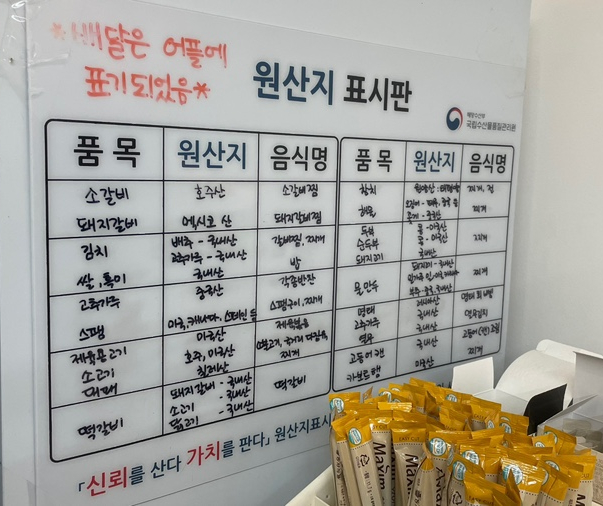 *배달은 어플에
표기되었음*
원산지 표시판
해양수산부
국립수산물품질관리원
품 목 원산지 음식명
소갈비 호주산 소갈비찜
돼지갈비 멕시코 산 돼지갈비찜
김치 배추 - 국내산 갈비찜, 찌개
고추가루 - 국내산
쌀, 흑미 국내산 밥
고추가루 중국산 각종반찬
스팸 미국, 캐나다, 스페인 등 스팸구이, 찌개
제육불고기 미국산 제육볶음
소고기 호주, 미국산
대패 칠레산 찌개
떡갈비 돼지갈비 - 국내산 떡갈비
소고기 - 국내산
닭고기 - 국내산
품 목 원산지 음식명
참치 원양산 찌개, 전
해물 찌개
두부 콩 - 미국산 찌개
순두부 콩 - 미국산
돼지고기 국내산
물만두 돼지고기 - 국내산 찌개
명태 러시아산
고추가루 국내산
열무 국내산 열무김치
고등어 캔 국내산 고등어(캔)조림
미국산 찌개
「신뢰를 산다 가치를 판다」 원산지표시
Maxim
Maxim